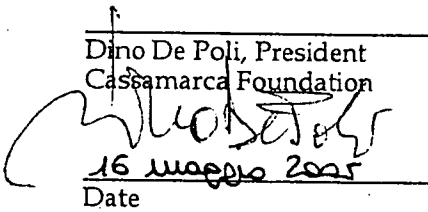 Dino De Poli, President
Cassamarca Foundation
Dino De Poli
16 maggio 2005
Date